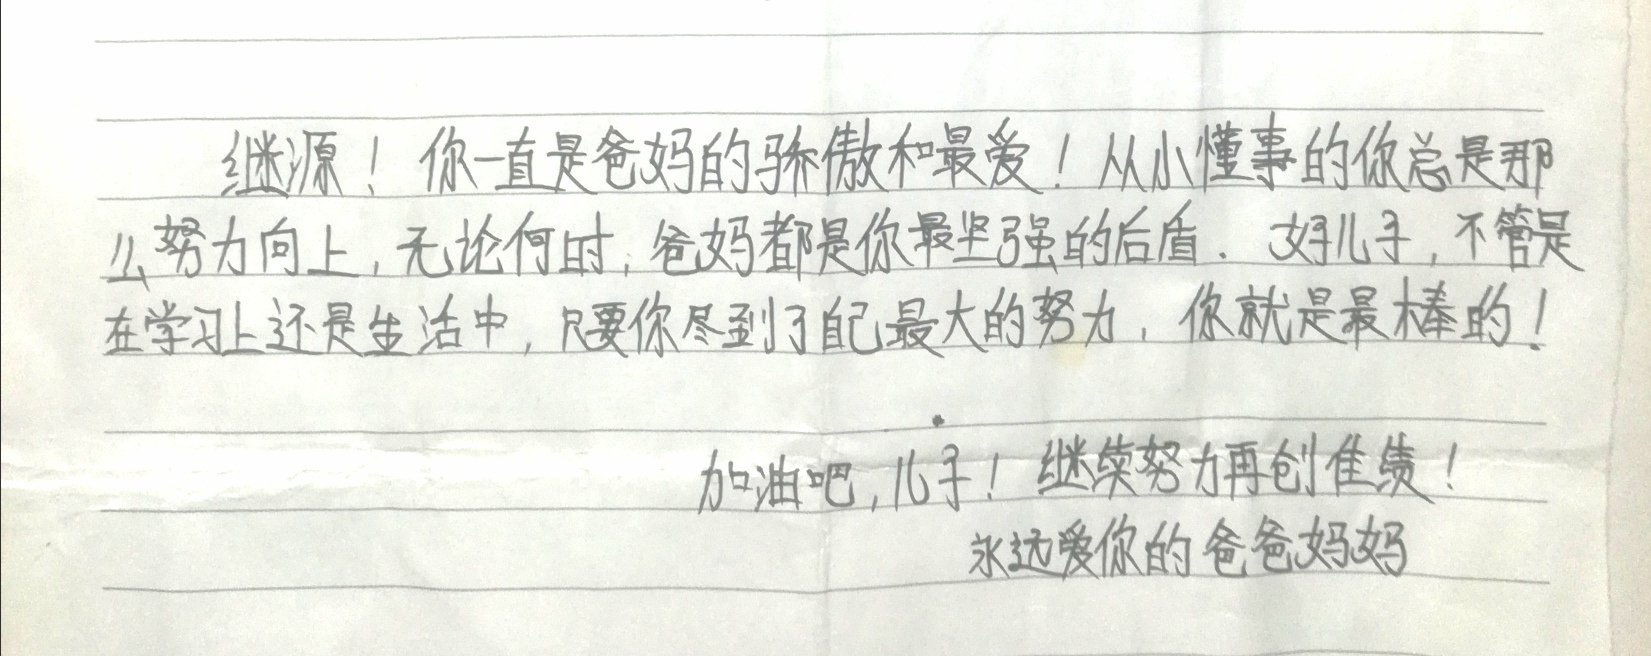 继源！你一直是爸妈的骄傲和最爱！从小懂事的你总是那
么努力向上，无论何时，爸妈都是你最坚强的后盾．好儿子，不管是
在学习上还是生活中，只要你尽到了自己最大的努力，你就是最棒的！
加油吧，儿子！继续努力再创佳绩！
永远爱你的爸爸妈妈